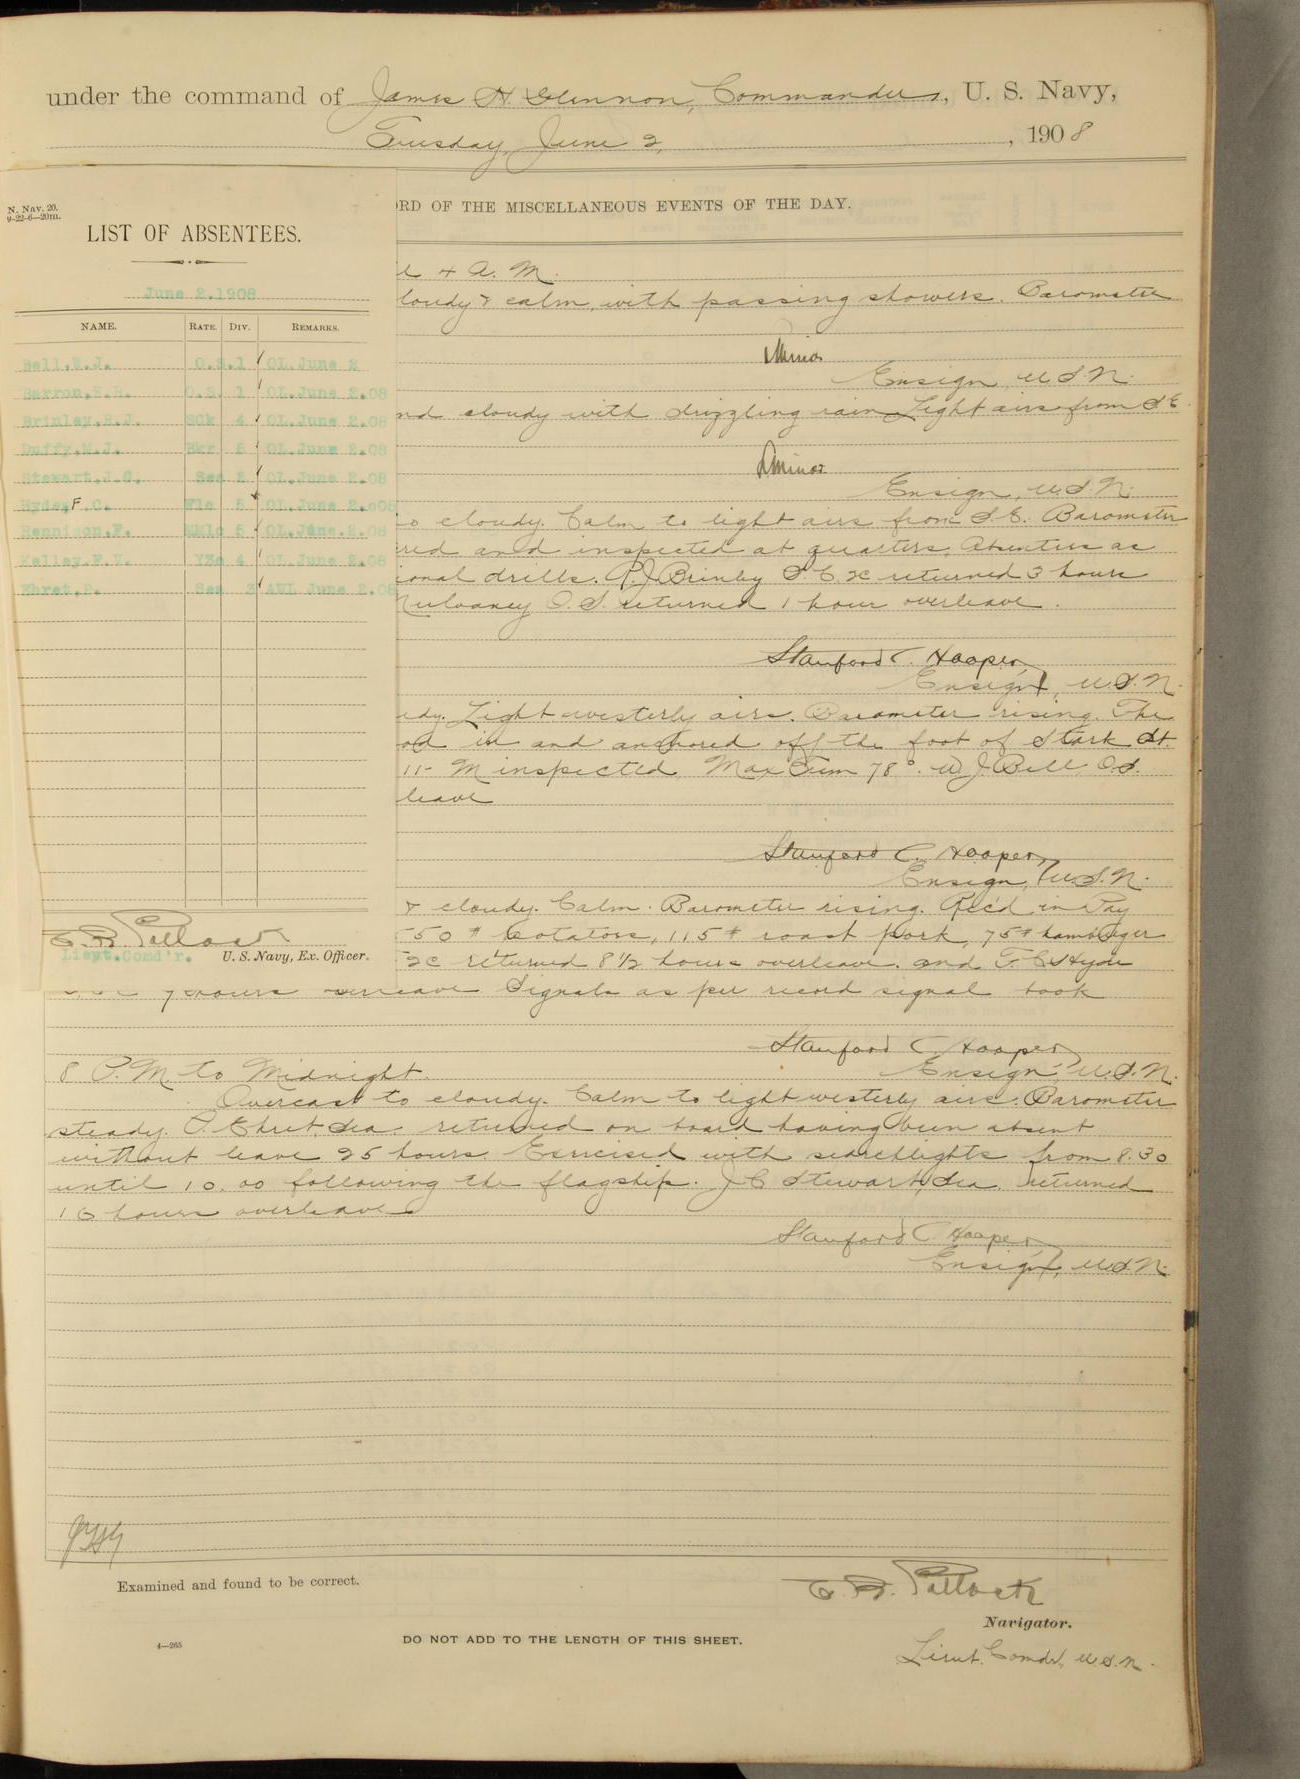 under the command of James H. Glennon, Commander, U. S. Navy,
Tuesday, June 2, , 1908
N. Nav. 20.
9-22-6—20m.
LIST OF ABSENTEES.
June 2.1908
NAME. RATE. DIV. REMARKS.
Bell,W.J. O.S. 1 OL.June 2
Barron, O.S. 1 OL.June 2.08
Brinley,R.J. SCk 4 OL.June 2.08
Duffy,M.J. Bkr 5 OL.June 2.08
Stewart,J.C. Sea 2 OL.June 2.08
Hyde,F.C. 5 OL.June 2.08
Hennison,F. 5 OL.June 2.08
Kelley,F.V. Y3c 4 OL.June 2.08
Ehret,P. Sea 3 AWL June 2.08
Lieut.Comd'r. U. S. Navy, Ex. Officer.
ORD OF THE MISCELLANEOUS EVENTS OF THE DAY.
4 A. M.
loudy & calm, with passing showers. Barometer
Minor
Ensign, U.S.N.
nd cloudy with drizzling rain Light airs from SE
Minor
Ensign, U.S.N.
to cloudy. Calm to light airs from S.E. Barometer
red and inspected at quarters. Absentees as
ional drills. R.J. Brinley S.C. 2c returned 3 hours
Mulvaney O.S. returned 1 hour overleave.
Stanford C. Hooper,
Ensign, U.S.N.
udy. Light westerly airs. Barometer rising. The
od in and anchored off the foot of Stark St.
11- M inspected Max Tem 78°. W J Bell O.S.
leave
Stanford C. Hooper,
Ensign, U.S.N.
& cloudy. Calm. Barometer rising. Rec'd in Pay
550# Potatoes, 115# roast pork, 75# hamburger
2c returned 8 1/2 hours overleave. and F. C. Hyde
7 hours overleave Signals as per record signal book
Stanford C Hooper,
8 P. M. to Midnight Ensign U.S.N.
Overcast to cloudy. Calm to light westerly airs. Barometer
steady. P. Ehret, Sea. returned on board having been absent
without leave 25 hours Exercised with searchlights from 8.30
until 10.00 following the flagship. J C Stewart, Sea. returned
16 hours overleave
Stanford C Hooper,
Ensign, U.S.N.
Examined and found to be correct.
Navigator.
4—265
DO NOT ADD TO THE LENGTH OF THIS SHEET.
Lieut. Comdr, U.S.N.